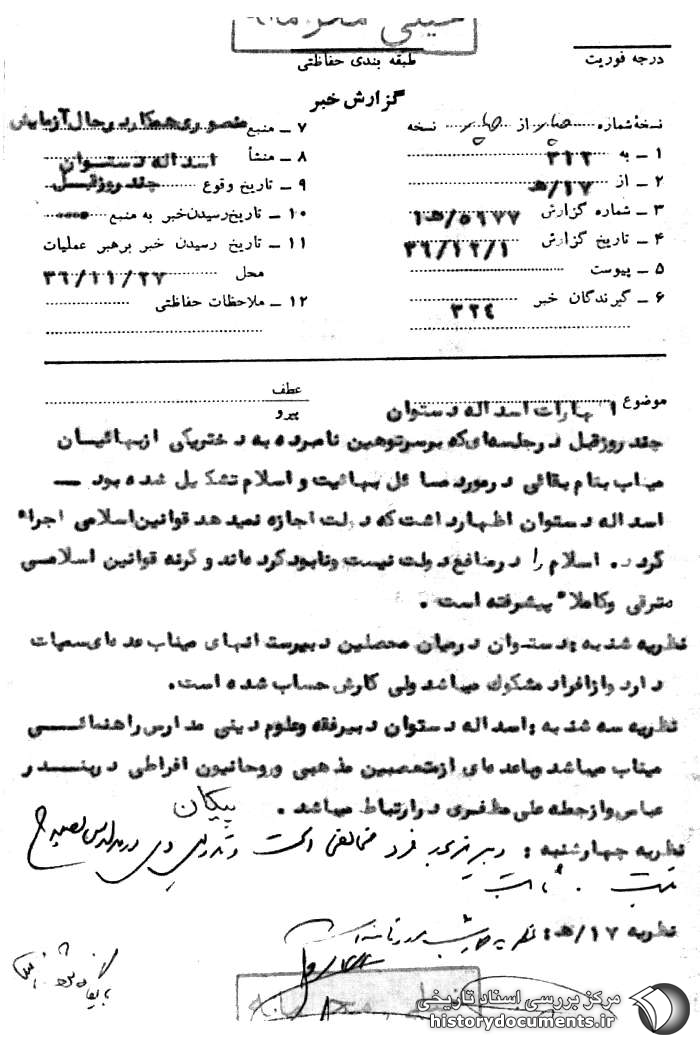 خیلی محرمانه
درجه فوریت
طبقه بندی حفاظتی
گزارش خبر
نسخهٔ شماره چهار از چهار نسخه
۱ ــ به ۳۱۲
۲ ــ از ۱۷/هـ
۳ ــ شماره گزارش ۵۶۷۷/هـ۱
۴ ــ تاریخ گزارش ۳۶/۱۲/۱
۵ ــ پیوست
۶ ــ گیرندگان خبر ۳۲۴
۷ ــ منبع منصوری همکار در حال آزمایش
۸ ــ منشأ اسداله دستوان
۹ ــ تاریخ وقوع چند روز قبل
۱۰ ــ تاریخ رسیدن خبر به منبع
۱۱ ــ تاریخ رسیدن خبر برهبر عملیات
محل ۳۶/۱۱/۲۷
۱۲ ــ ملاحظات حفاظتی
عطف
پیرو
موضوع اظهارات اسداله دستوان
چند روز قبل در جلسه‌ای که بر سر توهین نامبرده به دختر یکی از بهائیان
میناب بنام بقائی در مورد مسائل بهائیت و اسلام تشکیل شده بود ــ
اسداله دستوان اظهار داشت که دولت اجازه نمیدهد قوانین اسلامی اجراء
گردد. اسلام را در منافع دولت نیست و نابود کرده‌اند و گرنه قوانین اسلامی
مترقی و کاملاً پیشرفته است.
نظریه شنبه : دستوان در میان محصلین دبیرستانهای میناب عده‌ای سمپات
دارد و از افراد مشکوک میباشد ولی کارش حساب شده است.
نظریه سه شنبه : اسداله دستوان دبیر فقه و علوم دینی مدارس راهنمائی
میناب میباشد و با عده‌ای از متعصبین مذهبی و روحانیون افراطی در بندر
عباس و از جمله علی مظفری در ارتباط میباشد. پیکان
نظریه چهارشنبه : فرد مخالفی است و تدریس وی در مدارس بصلاح
نیست.
نظریه ۱۷/هـ : نظریه چهارشنبه مورد تائید است
خیلی محرمانه
مرکز بررسی اسناد تاریخی
historydocuments.ir